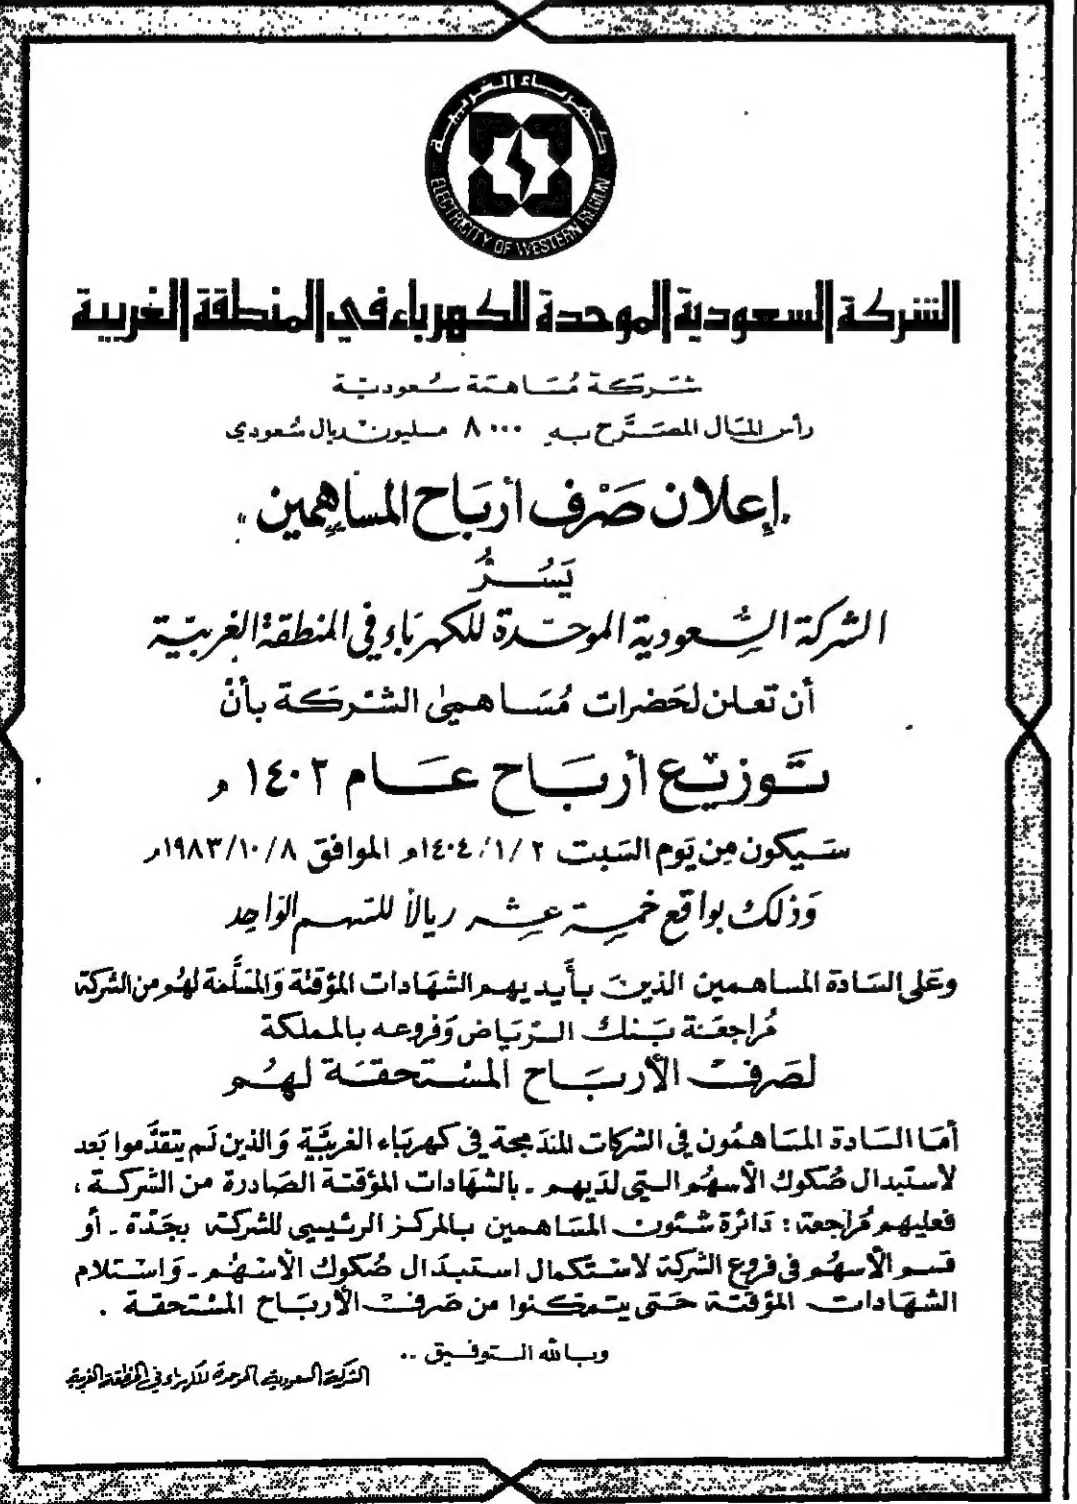 كهرباء الغربية
ELECTRICITY OF WESTERN REGION
الشركة السعودية الموحدة للكهرباء في المنطقة الغربية
شركة مساهمة سعودية
رأس المال المصرح به ٨٠٠٠ مليون ريال سعودي
"إعلان صرف أرباح المساهمين"
يسر
الشركة السعودية الموحدة للكهرباء في المنطقة الغربية
أن تعلن لحضرات مساهمي الشركة بأن
توزيع أرباح عام ١٤٠٢ هـ
سيكون من يوم السبت ١٤٠٤/١/٢هـ الموافق ١٩٨٣/١٠/٨م
وذلك بواقع خمسة عشر ريالاً للسهم الواحد
وعلى السادة المساهمين الذين بأيديهم الشهادات المؤقتة والمسلمة لهم من الشركة
مراجعة بنك الرياض وفروعه بالمملكة
لصرف الأرباح المستحقة لهم
أما السادة المساهمون في الشركات المندمجة في كهرباء الغربية والذين لم يتقدموا بعد
لاستبدال صكوك الأسهم التي لديهم - بالشهادات المؤقتة الصادرة من الشركة ،
فعليهم مراجعة : دائرة شئون المساهمين بالمركز الرئيسي للشركة بجدة - أو
قسم الأسهم في فروع الشركة لاستكمال استبدال صكوك الأسهم - واستلام
الشهادات المؤقتة حتى يتمكنوا من صرف الأرباح المستحقة .
وبالله التوفيق ..
الشركة السعودية الموحدة للكهرباء في المنطقة الغربية